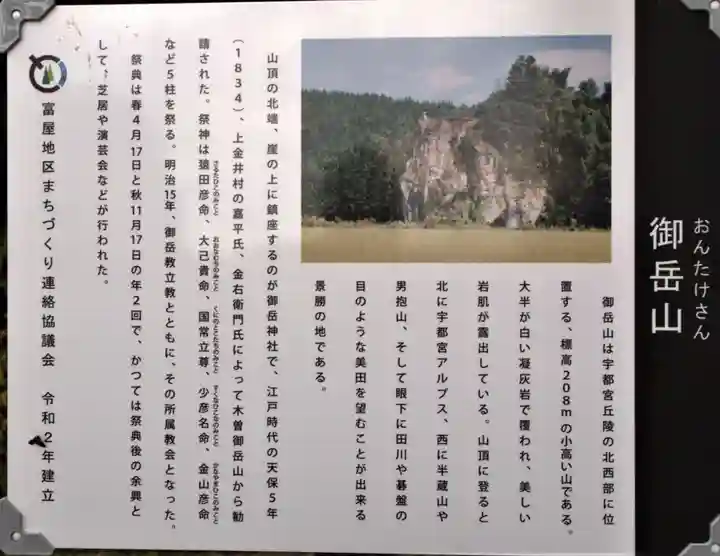 おんたけさん
御岳山
御岳山は宇都宮丘陵の北西部に位
置する、標高208mの小高い山である。
大半が白い凝灰岩で覆われ、美しい
岩肌が露出している。山頂に登ると
北に宇都宮アルプス、西に半蔵山や
男抱山、そして眼下に田川や碁盤の
目のような美田を望むことが出来る
景勝の地である。
山頂の北端、崖の上に鎮座するのが御岳神社で、江戸時代の天保5年
(1834)、上金井村の嘉平氏、金右衛門氏によって木曽御岳山から勧
請された。祭神は猿田彦命、大己貴命、国常立尊、少彦名命、金山彦命
さるたひこのみこと
おおなむちのみこと
くにのとこたちのみこと
すくなひこなのみこと
かなやまひこのみこと
など5柱を祭る。明治15年、御岳教立教とともに、その所属教会となった。
祭典は春4月17日と秋11月17日の年2回で、かつては祭典後の余興と
して、芝居や演芸会などが行われた。
富屋地区まちづくり連絡協議会 令和2年建立